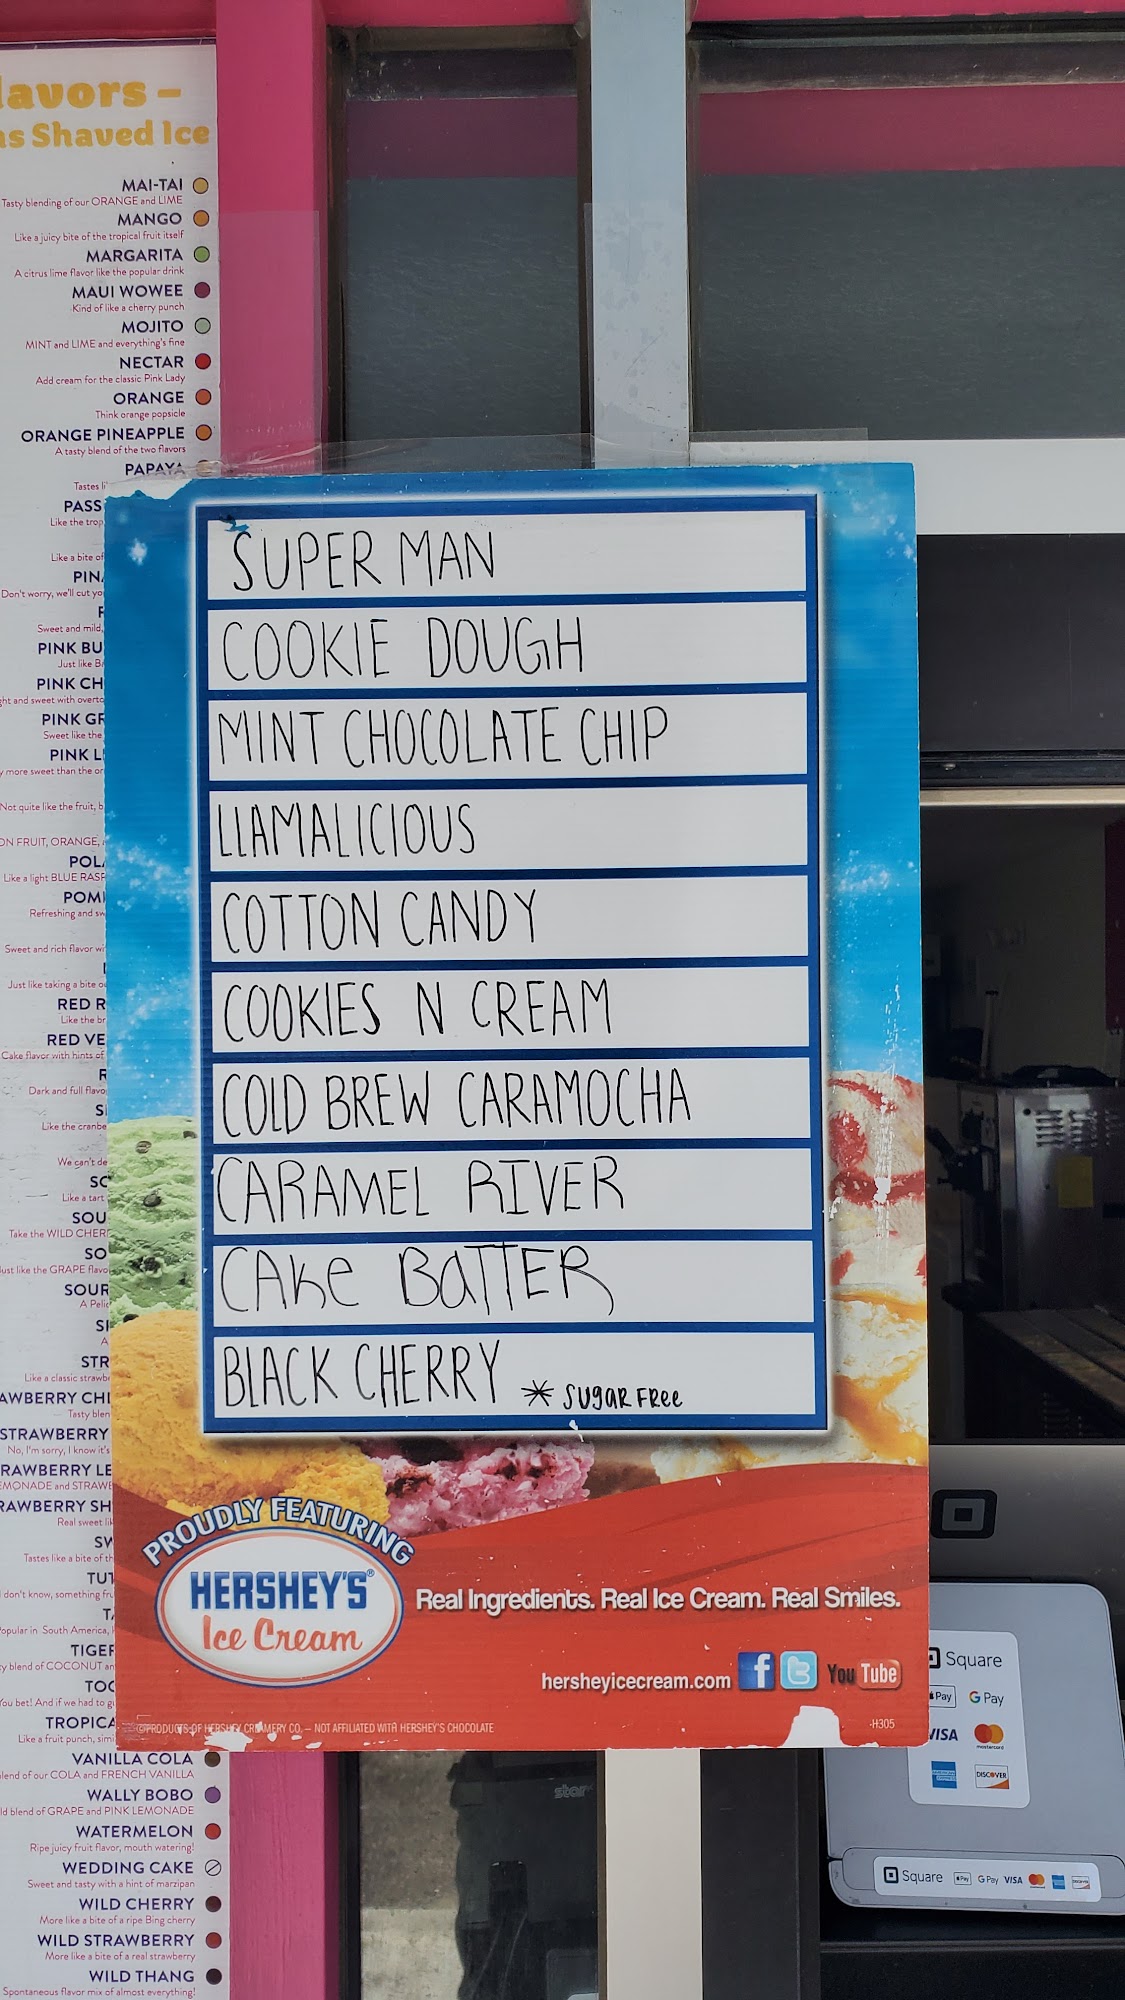 lavors –
as Shaved Ice
MAI-TAI
Tasty blending of our ORANGE and LIME
MANGO
Like a juicy bite of the tropical fruit itself
MARGARITA
A citrus lime flavor like the popular drink
MAUI WOWEE
Kind of like a cherry punch
MOJITO
MINT and LIME and everything's fine
NECTAR
Add cream for the classic Pink Lady
ORANGE
Think orange popsicle
ORANGE PINEAPPLE
A tasty blend of the two flavors
PAPAYA
Tastes li
PASS
Like the trop
Like a bite of
PIN
Don't worry, we'll cut yo
Sweet and mild,
PINK BU
Just like B
PINK CH
ght and sweet with overto
PINK GR
Sweet like the
PINK L
y more sweet than the or
Not quite like the fruit, b
ON FRUIT, ORANGE,
POL
Like a light BLUE RASP
POM
Refreshing and sw
Sweet and rich flavor wi
Just like taking a bite o
RED R
Like the br
RED VE
Cake flavor with hints of
Dark and full flavo
Like the cranbe
We can't de
SO
Like a tart
SOU
Take the WILD CHER
SO
ust like the GRAPE flavo
SOUR
A Peli
STR
Like a classic strawbe
AWBERRY CHE
Tasty blen
STRAWBERRY
No, I'm sorry, I know it's
RAWBERRY LE
EMONADE and STRAWB
RAWBERRY SH
Real sweet lik
SW
Tastes like a bite of th
TUT
don't know, something fru
opular in South America,
TIGER
y blend of COCONUT an
TOO
You bet! And if we had to g
TROPICA
Like a fruit punch, simi
VANILLA COLA
lend of our COLA and FRENCH VANILLA
WALLY BOBO
ld blend of GRAPE and PINK LEMONADE
WATERMELON
Ripe juicy fruit flavor, mouth watering!
WEDDING CAKE
Sweet and tasty with a hint of marzipan
WILD CHERRY
More like a bite of a ripe Bing cherry
WILD STRAWBERRY
More like a bite of a real strawberry
WILD THANG
Spontaneous flavor mix of almost everything!
SUPER MAN
COOKIE DOUGH
MINT CHOCOLATE CHIP
LLAMALICIOUS
COTTON CANDY
COOKIES N CREAM
COLD BREW CARAMOCHA
CARAMEL RIVER
CAke BaTTER
BLACK CHERRY * SUgaR FRee
PROUDLY FEATURING
HERSHEY'S®
Ice Cream
Real Ingredients. Real Ice Cream. Real Smiles.
hersheyicecream.com f t YouTube
©PRODUCTS OF HERSHEY CREAMERY CO. – NOT AFFILIATED WITH HERSHEY'S CHOCOLATE
-H305
Square
Pay G Pay
VISA mastercard
AMERICAN EXPRESS DISCOVER
star
Square Pay G Pay VISA